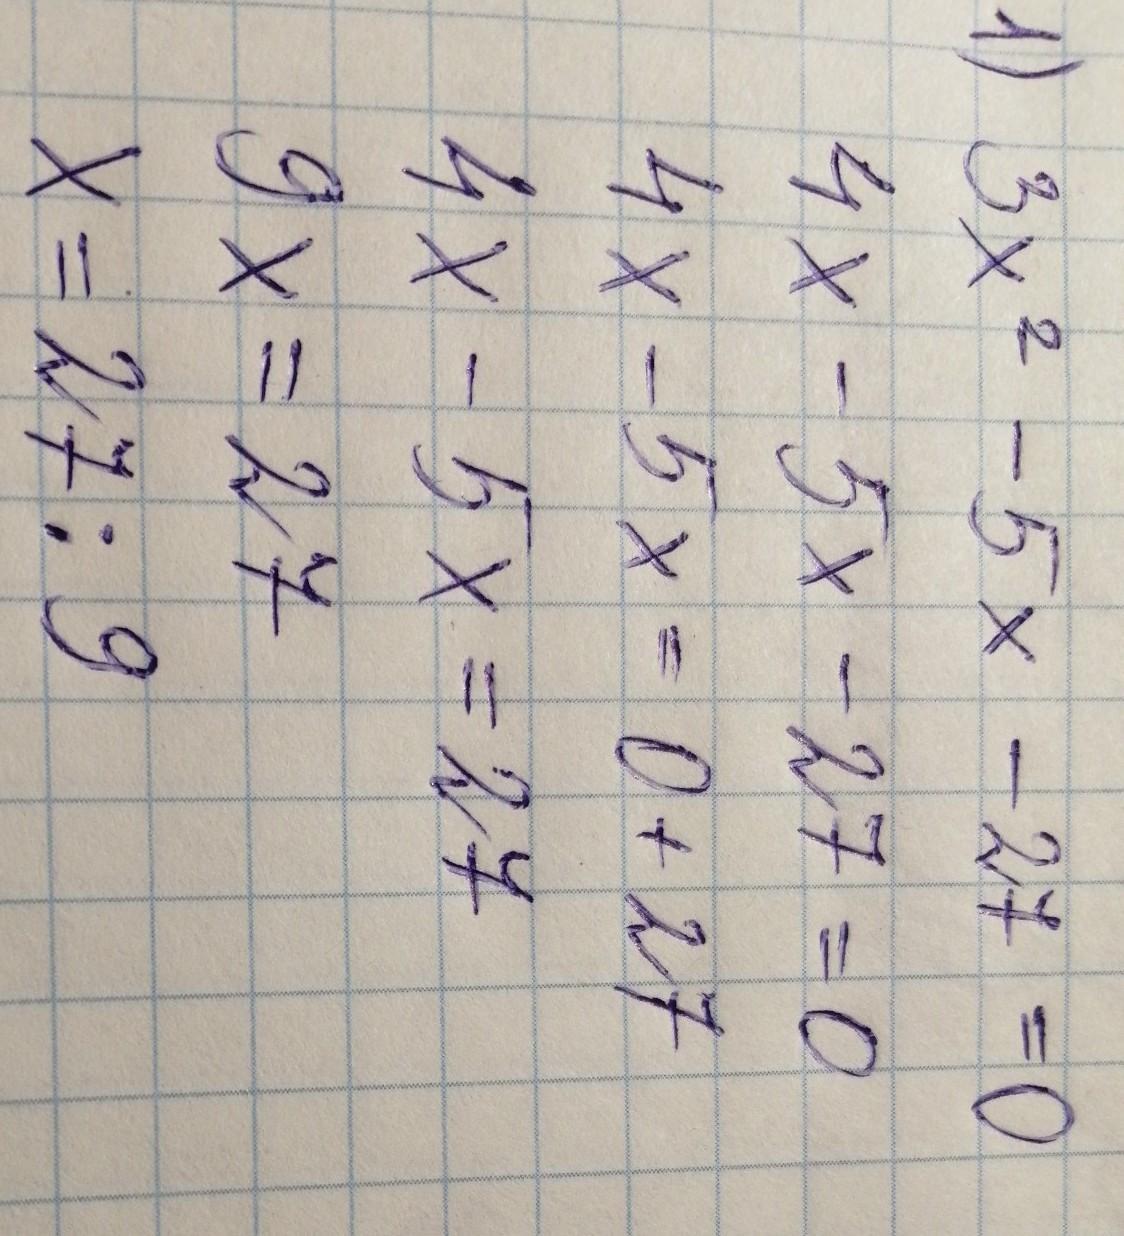 1) 3x² - 5x - 27 = 0
4x - 5x - 27 = 0
4x - 5x = 0 + 27
4x - 5x = 27
9x = 27
x = 27 : 9